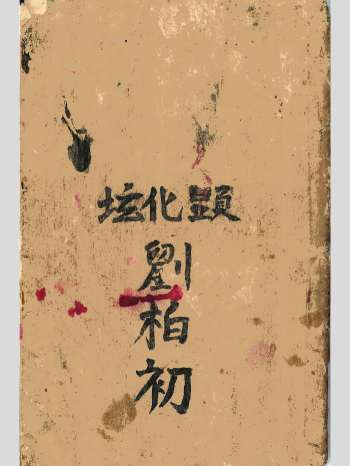 顕化坛
劉柏初